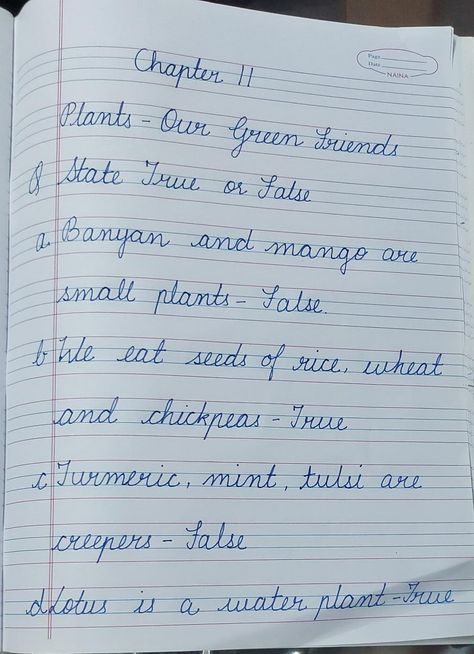 Page
Date
NAINA
Chapter 11
Plants - Our Green Friends
Q State True or False
a. Banyan and mango are
small plants - False.
b We eat seeds of rice, wheat
and chickpeas - True
c Turmeric, mint, tulsi are
creepers - False
d Lotus is a water plant - True